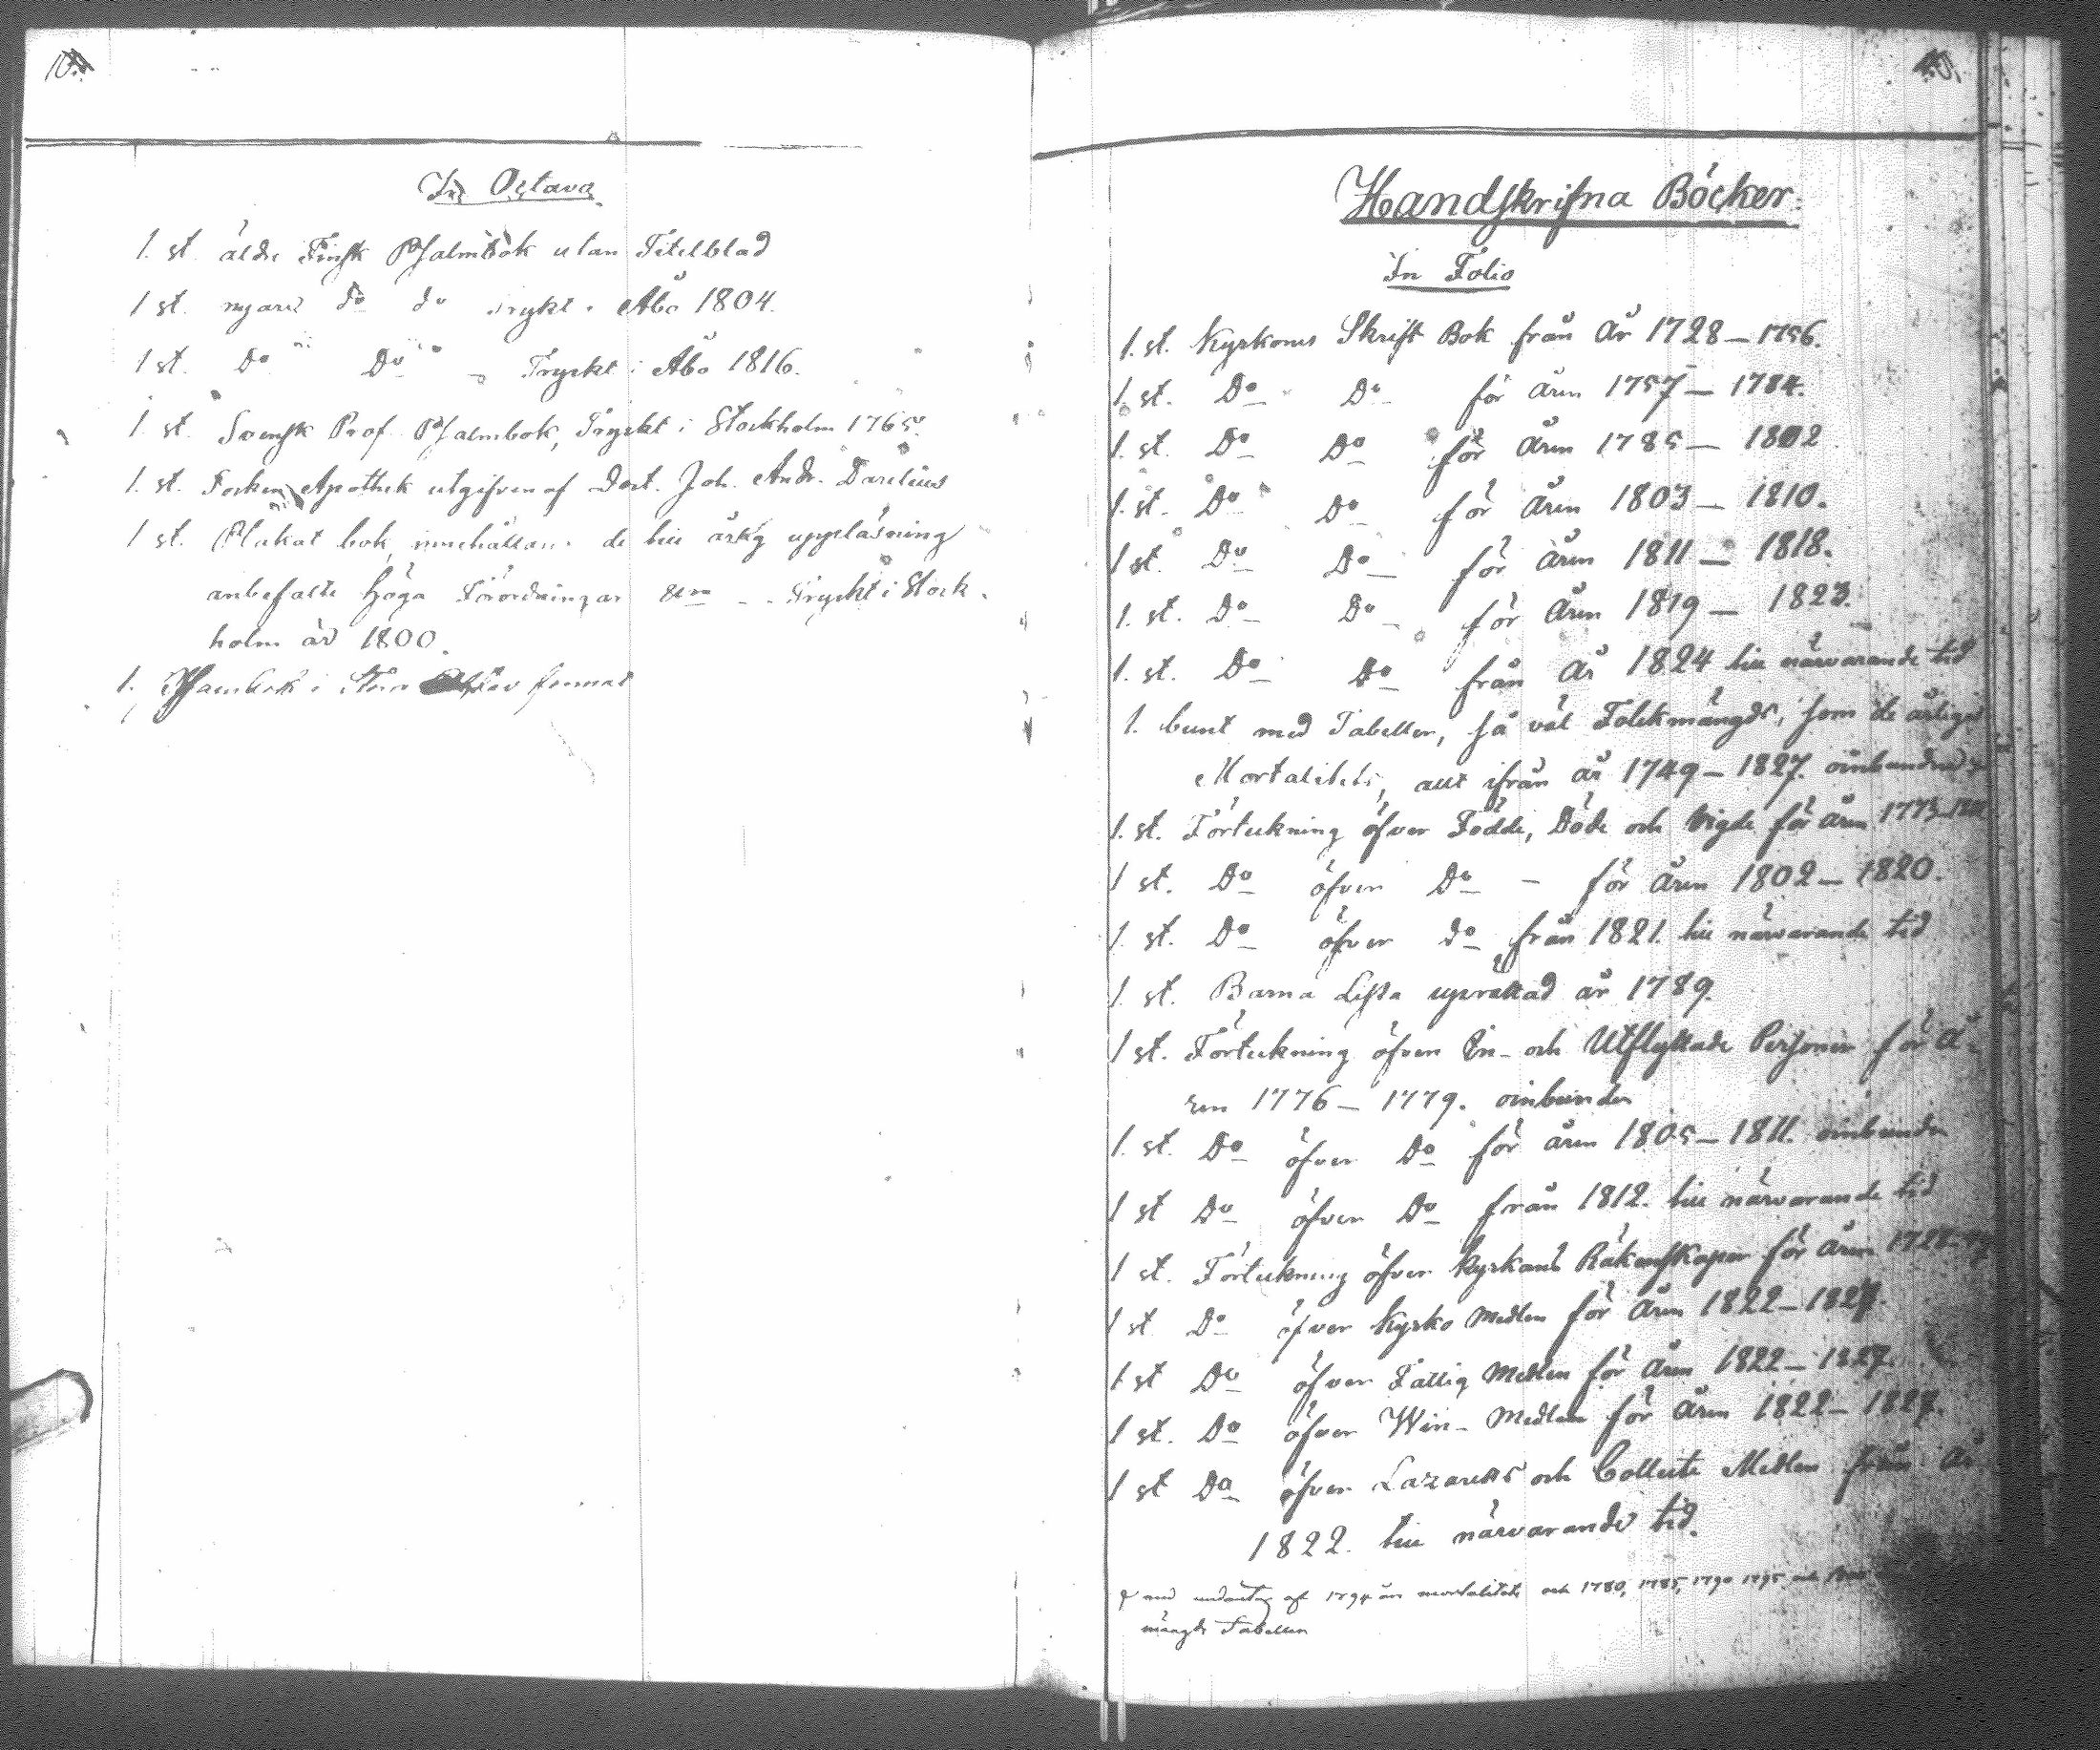 In Octava
1. st. äldre Finsk Psalmbok utan Titelblad
1 st. nyare do do Tryckt i Åbo 1804.
1 st. Do Do Tryckt i Åbo 1816.
1. st. Svensk Prof Psalmbok, Tryckt i Stockholm 1765.
1. st. Socken Apothek utgifven af Doct. Joh. Andr. Darelius
1 st. Plakat bok, innehållan. de till årlig uppläsning
anbefalte höga Förordningar Tryckt i Stock-
holm år 1800.
1. Psalmbok i Stor format
Handskrifna Böcker.
In Folio
1. st. Kyrkones Skrift Bok från år 1728–1756.
1. st. Do Do för åren 1757–1784.
1. st. Do Do för åren 1785–1802
1. st. Do Do för åren 1803–1810.
1 st. Do Do för åren 1811–1818.
1. st. Do Do för åren 1819–1823.
1. st. Do Do från år 1824 till närvarande tid
1. bunt med Tabeller, så väl Folckmängds, som de årliga
Mortalitets, allt ifrån år 1749–1827. oinbundne
1. st. Förteckning öfver Födde, Döde och Vigde för åren 1773–
1 st. Do öfver Do – för åren 1802–1820.
1. st. Do öfver do från 1821. till närvarande tid
1. st. Barna Lista upprättad år 1789.
1 st. Förteckning öfver In- och Utflyttade Personer för å-
ren 1776–1779. oinbunden
1. st. Do öfver Do för åren 1805–1811. oinbunden
1 st Do öfver Do från 1812. till närvarande tid
1 st. Förteckning öfver Kyrkans Räkenskaper för åren 1728–
1 st. Do öfver Kyrko Medlen för åren 1822–1827.
1 st Do öfver Fattig Medlen för åren 1822–1827.
1 st. Do öfver Win- Medlen för åren 1822–1827.
1 st Do öfver Lazaretts och Collecte Medlen från år
1822. till närvarande tid.
med undantag af 1794 års mortalitets och 1780, 1785, 1790 1795 och
mängds Tabellen